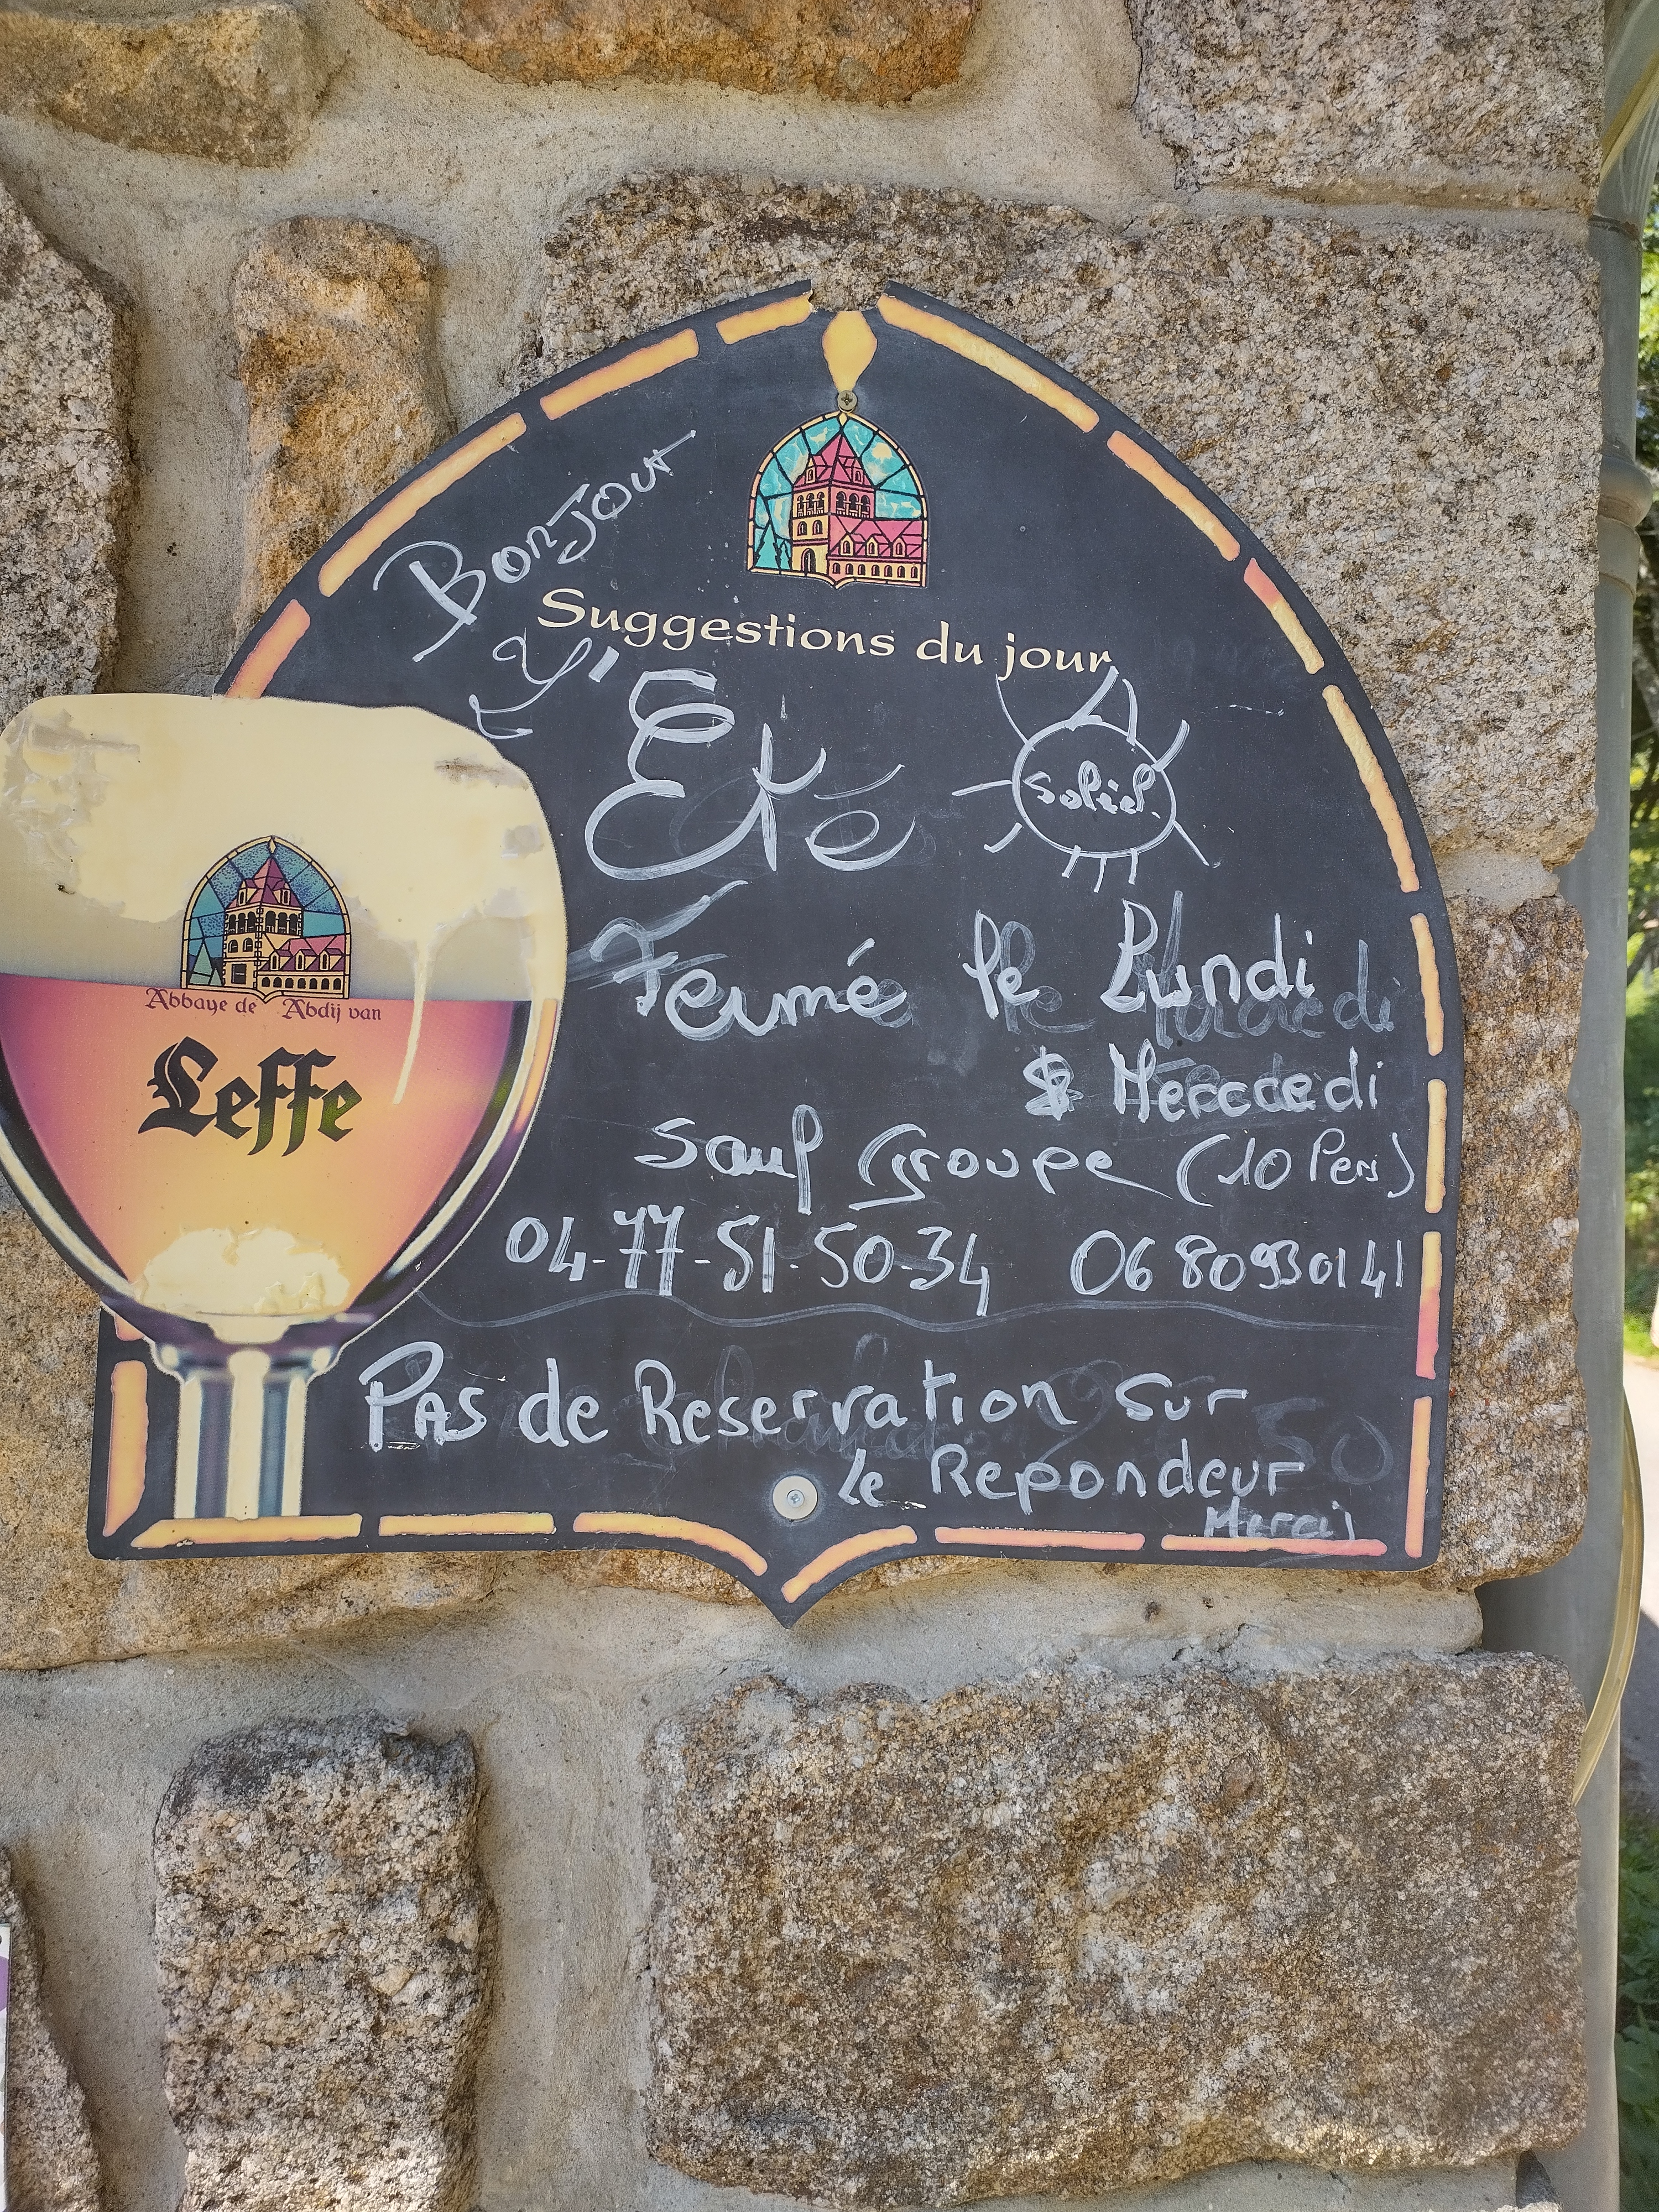 Bonjour
Suggestions du jour
Eté
Soleil.
Fermé le Lundi
& Mercredi
Sauf Groupe (10 Pers)
04-77-51-50-34 0680930141
Pas de Reservation sur
le Repondeur
Merci
Abbaye de Abdij van
Leffe